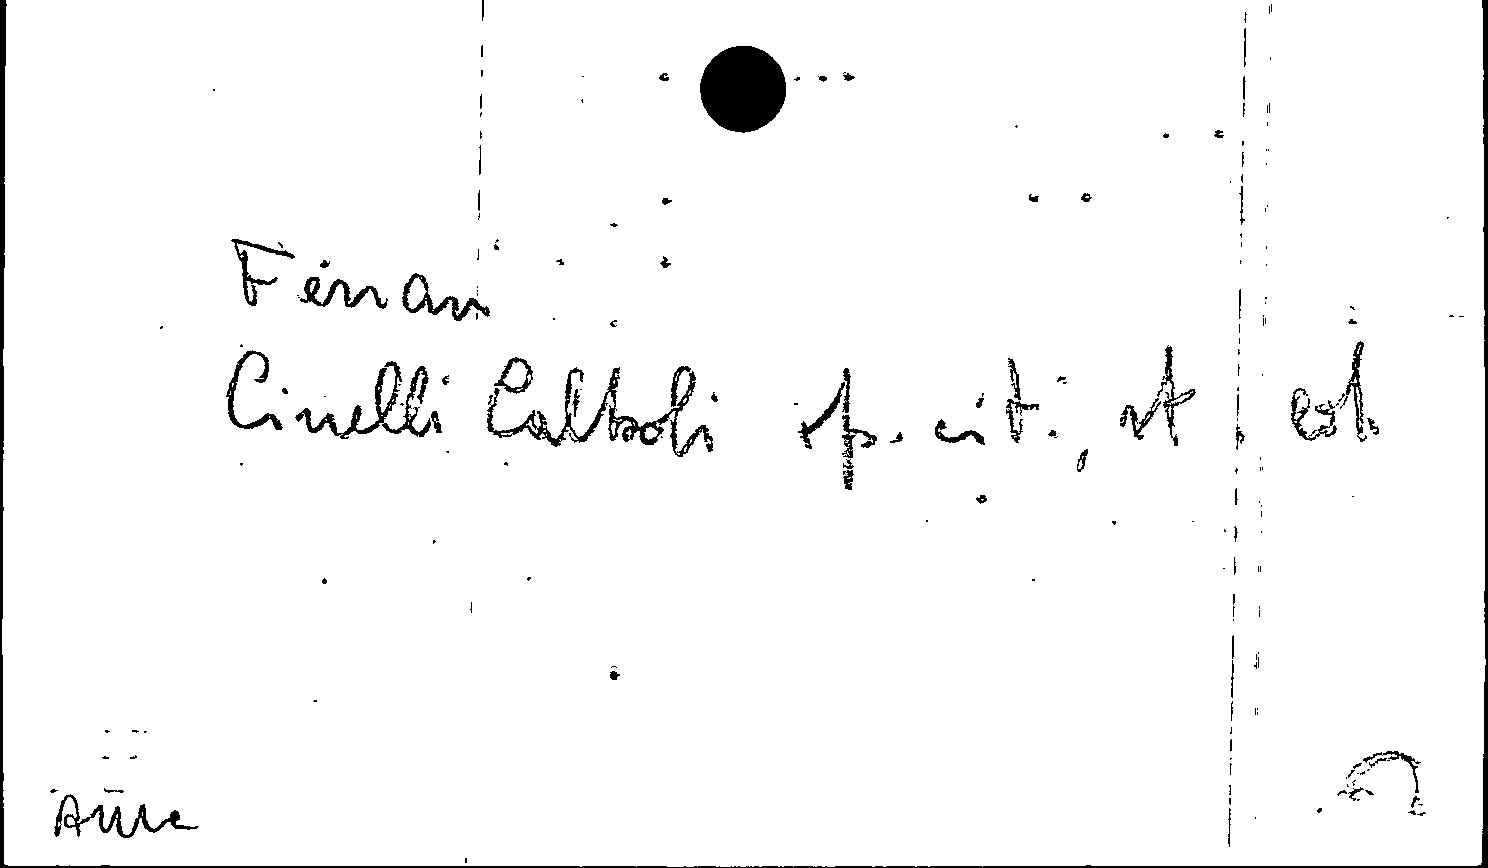 Ferrari
Cinelli Calboli op. cit., st. est.